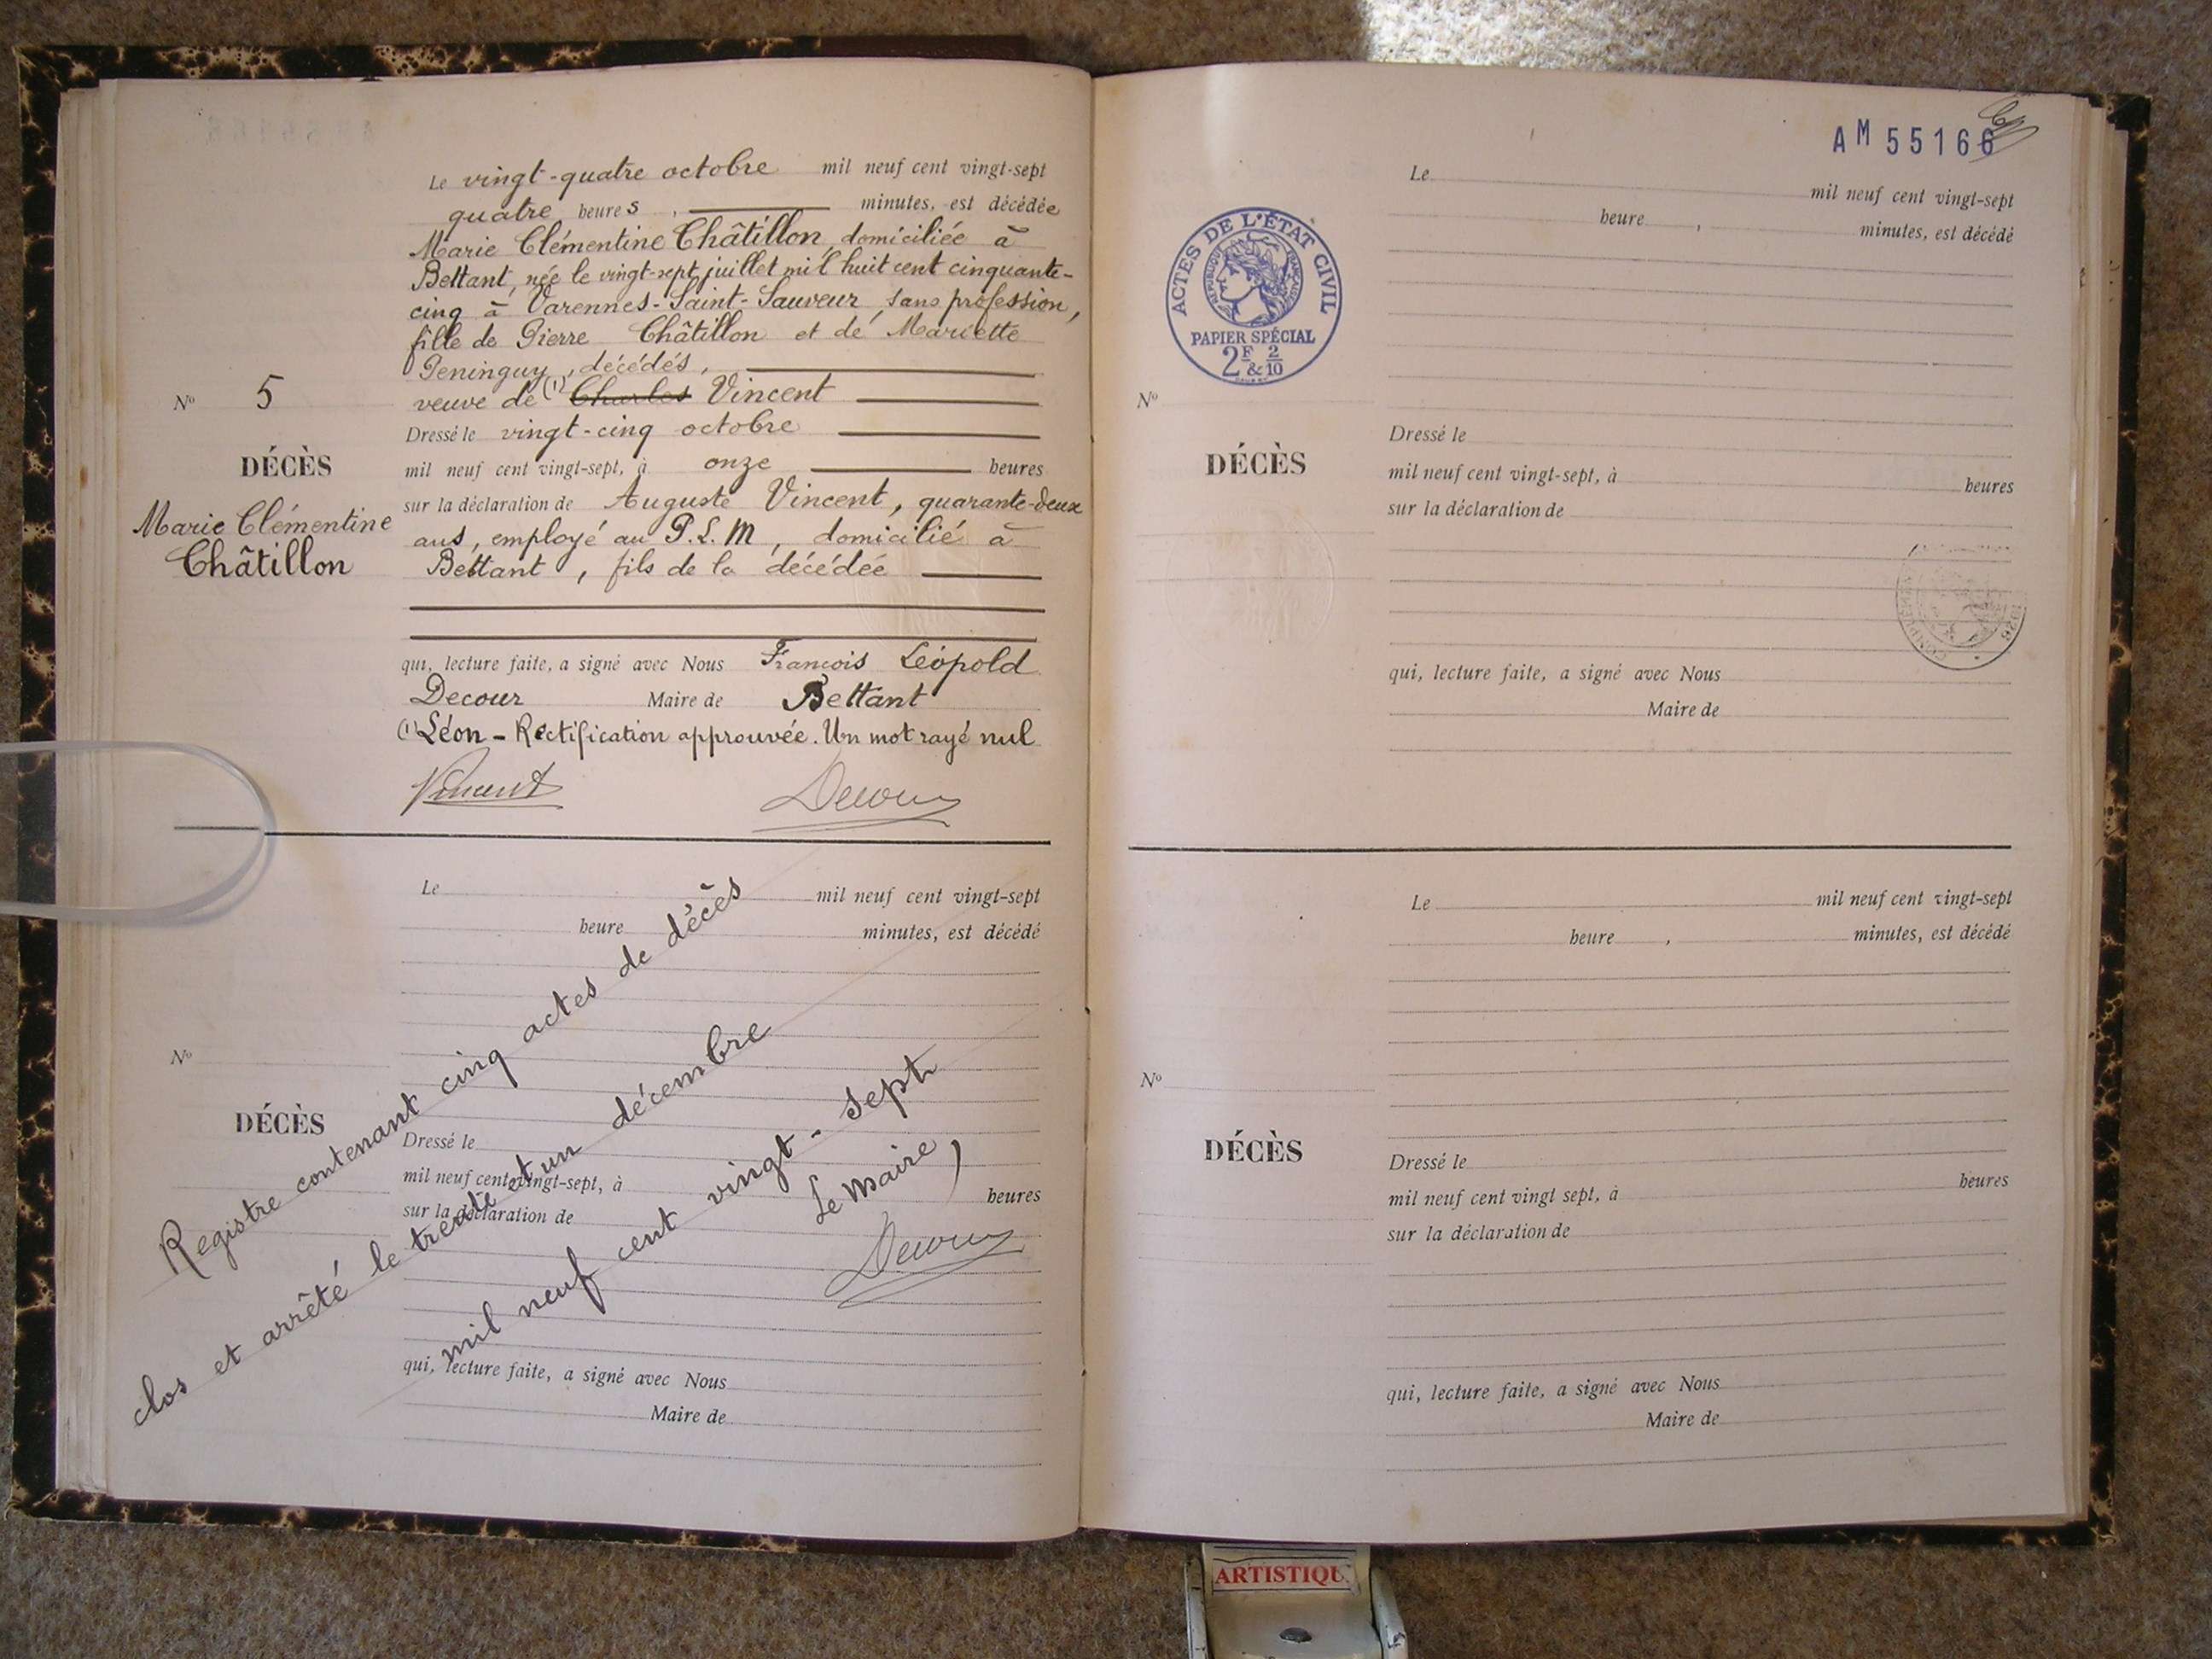 Le vingt-quatre octobre mil neuf cent vingt-sept
quatre heures, minutes, est décédée
Marie Clémentine Châtillon, domiciliée à
Bettant, née le vingt-sept juillet mil huit cent cinquante-
cinq à Varennes-Saint-Sauveur, sans profession,
fille de Pierre Châtillon et de Mariette
Peninguy, décédés,
veuve de (1) Charles Vincent
Nº 5
DÉCÈS
Marie Clémentine
Châtillon
Dressé le vingt-cinq octobre
mil neuf cent vingt-sept, à onze heures
sur la déclaration de Auguste Vincent, quarante-deux
ans, employé au P.L.M, domicilié à
Bettant, fils de la décédée
qui, lecture faite, a signé avec Nous François Léopold
Decour Maire de Bettant
(1) Léon - Rectification approuvée. Un mot rayé nul
Vincent Decour
Le mil neuf cent vingt-sept
heure minutes, est décédé
Nº
DÉCÈS
Dressé le
mil neuf cent vingt-sept, à heures
sur la déclaration de
qui, lecture faite, a signé avec Nous
Maire de
Registre contenant cinq actes de décès
clos et arrêté le trente et un décembre
mil neuf cent vingt-sept
Le Maire,
Decour
AM 55166
ACTES DE L'ÉTAT CIVIL
RÉPUBLIQUE FRANÇAISE
PAPIER SPÉCIAL
2F & 2/10
Le mil neuf cent vingt-sept
heure, minutes, est décédé
Nº
DÉCÈS
Dressé le
mil neuf cent vingt-sept, à heures
sur la déclaration de
qui, lecture faite, a signé avec Nous
Maire de
Le mil neuf cent vingt-sept
heure, minutes, est décédé
Nº
DÉCÈS
Dressé le
mil neuf cent vingt sept, à heures
sur la déclaration de
qui, lecture faite, a signé avec Nous
Maire de
ARTISTIQU